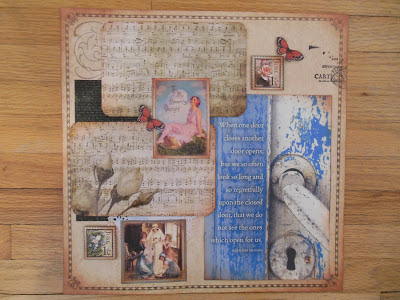 CART
When one door
closes another
door opens;
but we so often
look so long and
so regretfully
upon the closed
door, that we do
not see the ones
which open for us.